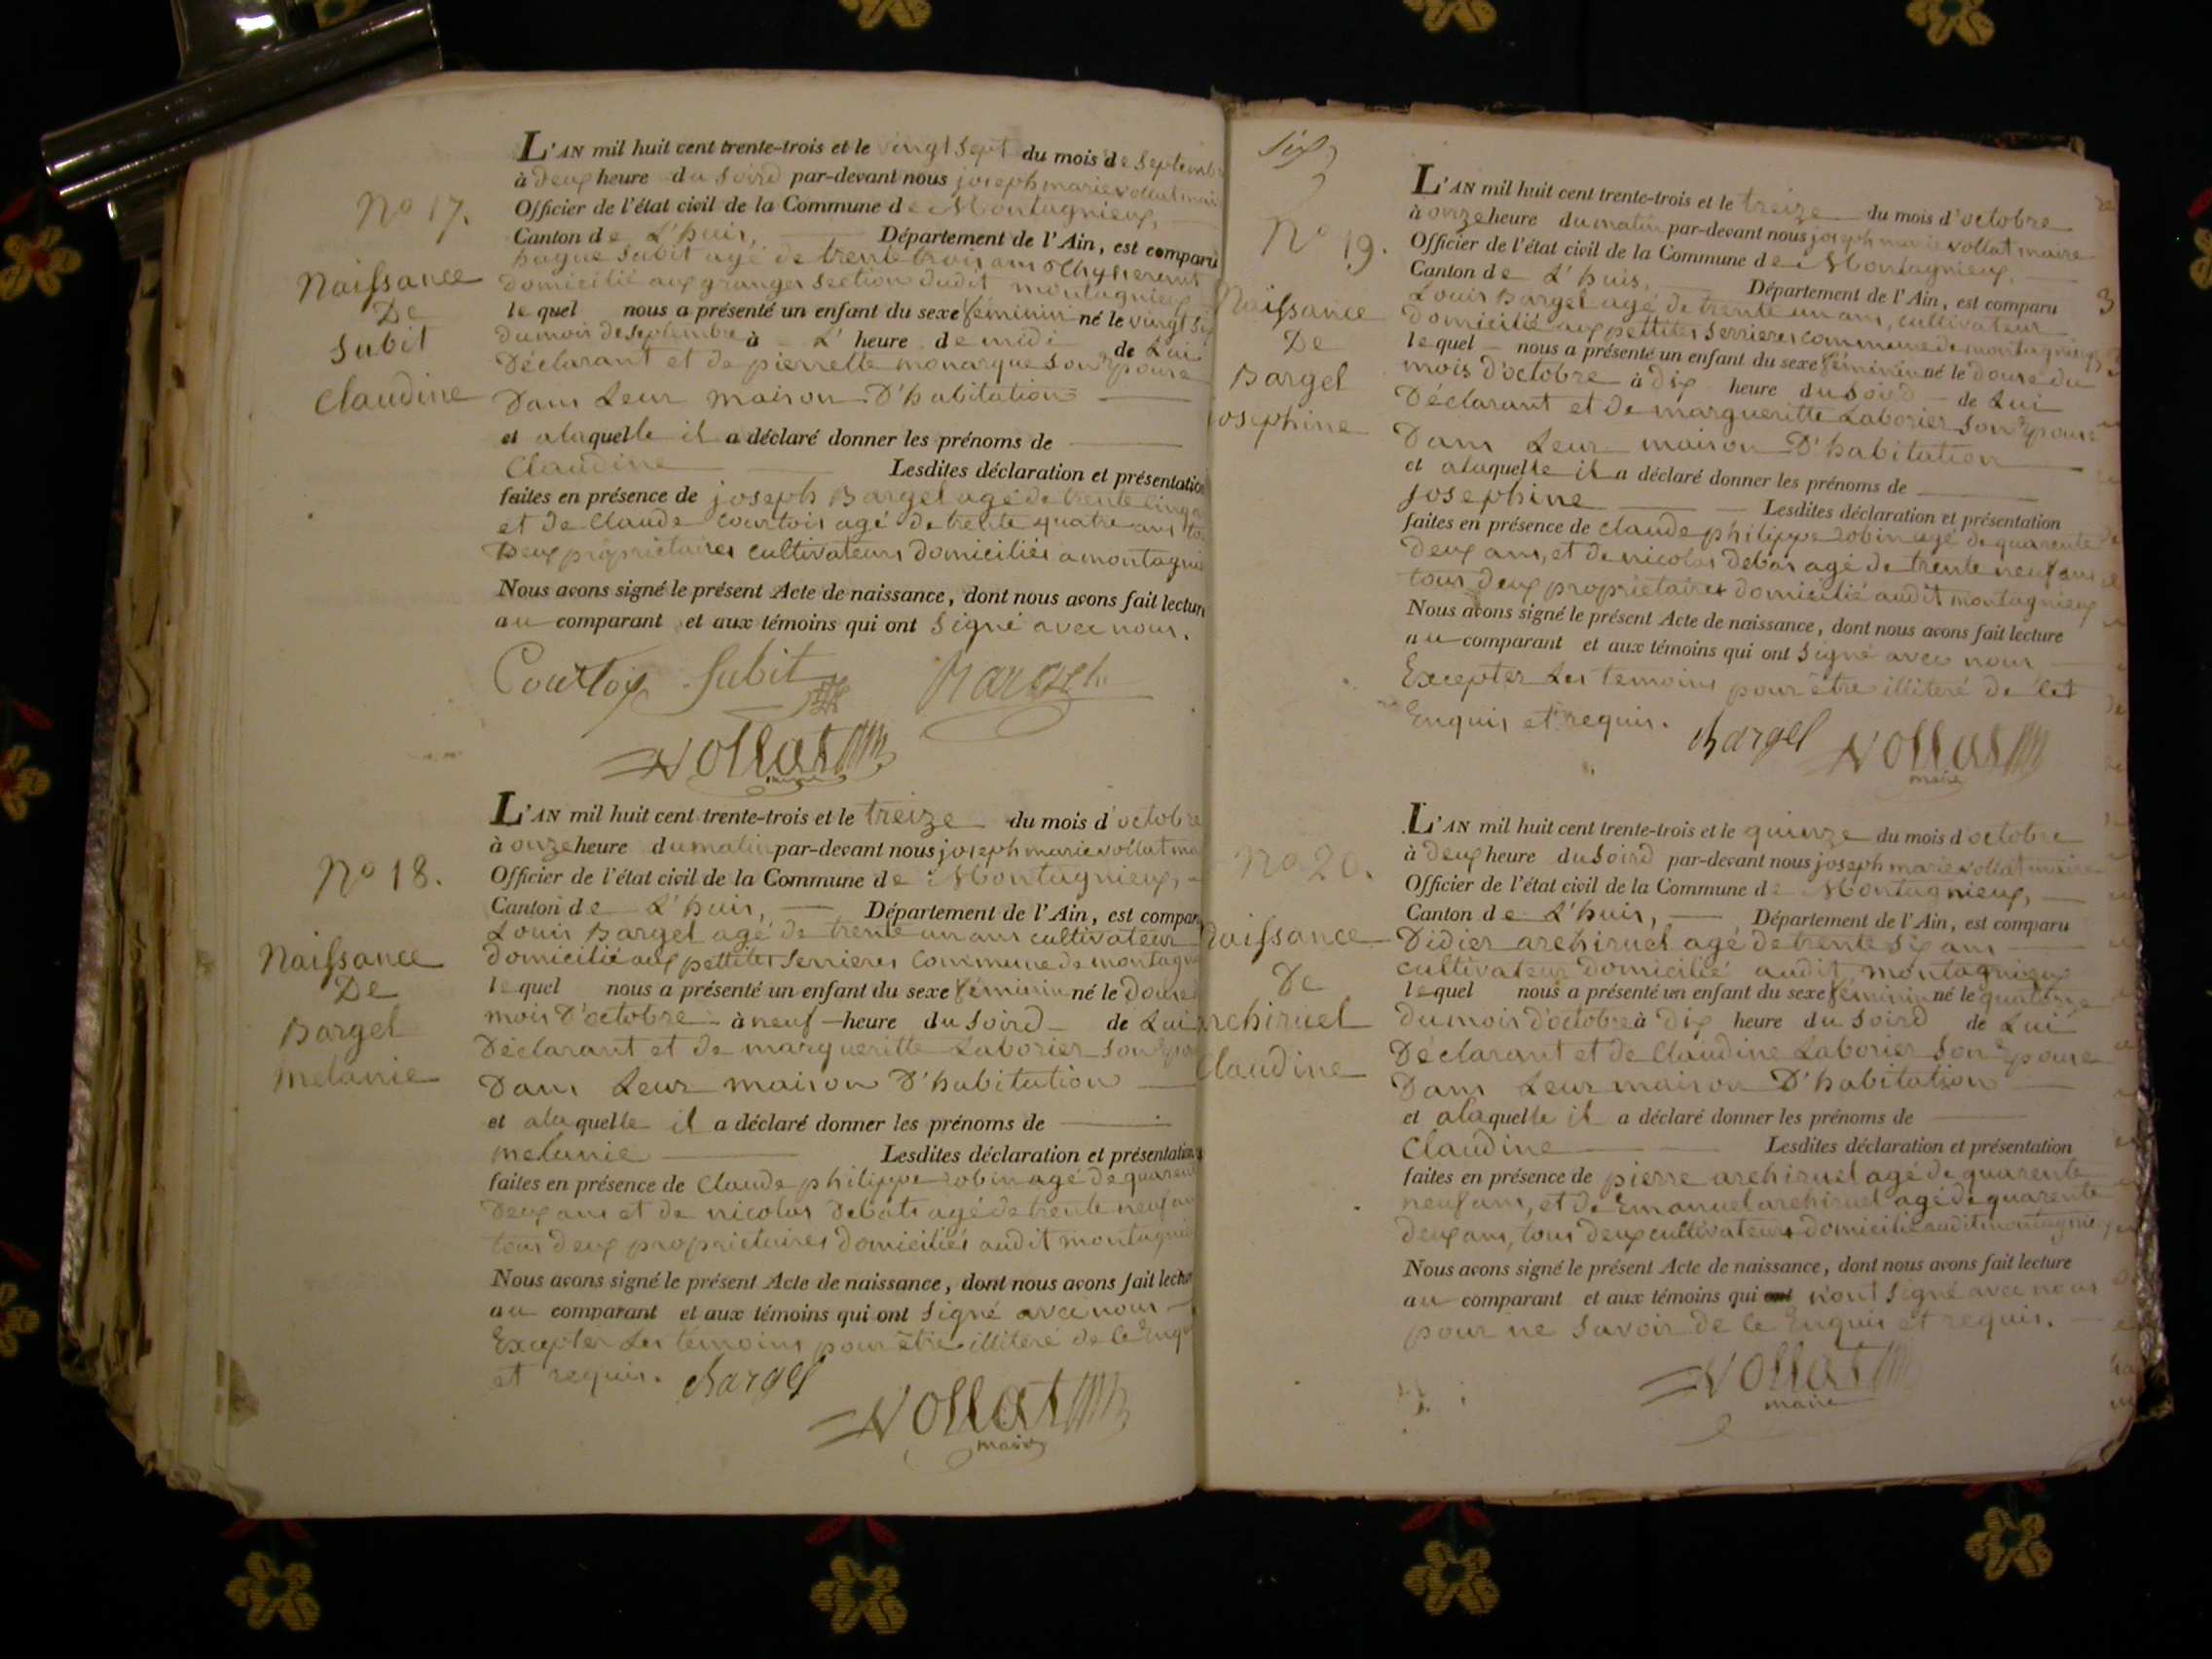 No 17.
Naissance
De
Subit
Claudine
L'AN mil huit cent trente-trois et le vingt sept du mois de septembre
à deux heure du soird par-devant nous joseph marie vollat mai
Officier de l'état civil de la Commune de Montagnieux,
Canton de L'huis, Département de l'Ain, est comparu
hugue Subit agé de trente trois ans
domicilié aux granges section dudit montagnieux
lequel nous a présenté un enfant du sexe féminin né le vingt six
du mois de septembre à L' heure de midi de Lui
Déclarant et de pierrette monarque son Epouse
Dans Leur maison D'habitation
et alaquelle il a déclaré donner les prénoms de
Claudine Lesdites déclaration et présentation
faites en présence de joseph Bargel agé de trente cinq
et de Claude Courtois agé de trente quatre ans
Deux propriétaires cultivateurs domiciliés a montagni
Nous avons signé le présent Acte de naissance, dont nous avons fait lectur
au comparant et aux témoins qui ont Signé avec nous.
Courtois Subit Bargel
Vollat
maire
No 18.
Naissance
De
Bargel
melanie
L'AN mil huit cent trente-trois et le treize du mois d'octobre
à onze heure du matin par-devant nous joseph marie vollat ma
Officier de l'état civil de la Commune de Montagnieux,
Canton de L'huis, Département de l'Ain, est compar
Louis Bargel agé de trente un ans cultivateur
domicilié aux pettites Serrieres Commune de montagn
lequel nous a présenté un enfant du sexe féminin né le douse
mois D'octobre à neuf heure du Soird de Lui
Déclarant et de margueritte Laborier son Epou
Dans Leur maison D'habitation
et alaquelle il a déclaré donner les prénoms de
melanie Lesdites déclaration et présentation
faites en présence de Claude philippe robin agé de quaren
Deux ans et de nicolas Debats agé de trente neuf an
tous deux propriétaires domiciliés audit montagni
Nous avons signé le présent Acte de naissance, dont nous avons fait lectu
au comparant et aux témoins qui ont Signé avec nous
Excepter Les témoins pour être illiteré de ce Enqu
et requis. Bargel
Vollat
maire
Six
No 19.
Naissance
De
Bargel
josephine
L'AN mil huit cent trente-trois et le treize du mois d'octobre
à onze heure du matin par-devant nous joseph marie vollat maire
Officier de l'état civil de la Commune de Montagnieux,
Canton de L'huis, Département de l'Ain, est comparu
Louis Bargel agé de trente un ans, cultivateur
domicilié aux pettites Serrieres commune de montagnieux
lequel nous a présenté un enfant du sexe féminin né le douse du
mois D'octobre à dix heure du Soird de Lui
Déclarant et de margueritte Laborier son Epouse
Dans Leur maison D'habitation
et alaquelle il a déclaré donner les prénoms de
Josephine Lesdites déclaration et présentation
faites en présence de claude philippe robin agé de quarente
deux ans, et de nicolas debas agé de trente neuf ans
tous deux propriétaires domicilié audit montagnieux
Nous avons signé le présent Acte de naissance, dont nous avons fait lecture
au comparant et aux témoins qui ont Signé avec nous
Excepter Les temoins pour être illiteré de cet
Enquis et requis. Bargel Vollat
maire
No 20.
Naissance
De
archiruel
Claudine
L'AN mil huit cent trente-trois et le quinze du mois d'octobre
à deux heure du Soird par-devant nous joseph marie vollat maire
Officier de l'état civil de la Commune de Montagnieux,
Canton de L'huis, Département de l'Ain, est comparu
Didier archiruel agé de trente six ans
cultivateur domicilié audit montagnieux
lequel nous a présenté un enfant du sexe féminin né le quatorze
du mois d'octobre à Dix heure du Soird de Lui
Déclarant et de Claudine Laborier son Epouse
Dans Leur maison D'habitation
et alaquelle il a déclaré donner les prénoms de
Claudine Lesdites déclaration et présentation
faites en présence de pierre archiruel agé de quarente
neuf ans, et de Emanuel archiruel agé de quarente
deux ans, tous deux cultivateurs domicilié audit montagnieux
Nous avons signé le présent Acte de naissance, dont nous avons fait lecture
au comparant et aux témoins qui ont n'ont Signé avec nous
pour ne Savoir de ce Enquis et requis.
Vollat
maire